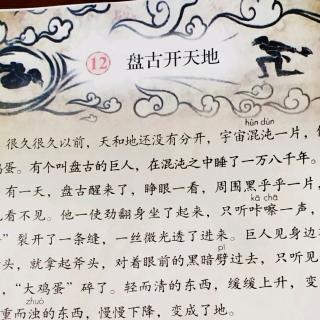 12 盘古开天地
hùn dùn
很久很久以前，天和地还没有分开，宇宙混沌一片，
鸡蛋。有个叫盘古的巨人，在混沌之中睡了一万八千年。
有一天，盘古醒来了，睁眼一看，周围黑乎乎一片，
kā chā
看不见。他一使劲翻身坐了起来，只听咔嚓一声，
”裂开了一条缝，一丝微光透了进来。巨人见身边
头，就拿起斧头，对着眼前的黑暗劈过去，只听见
pī
，“大鸡蛋”碎了。轻而清的东西，缓缓上升，变
zhuó
重而浊的东西，慢慢下降，变成了地。